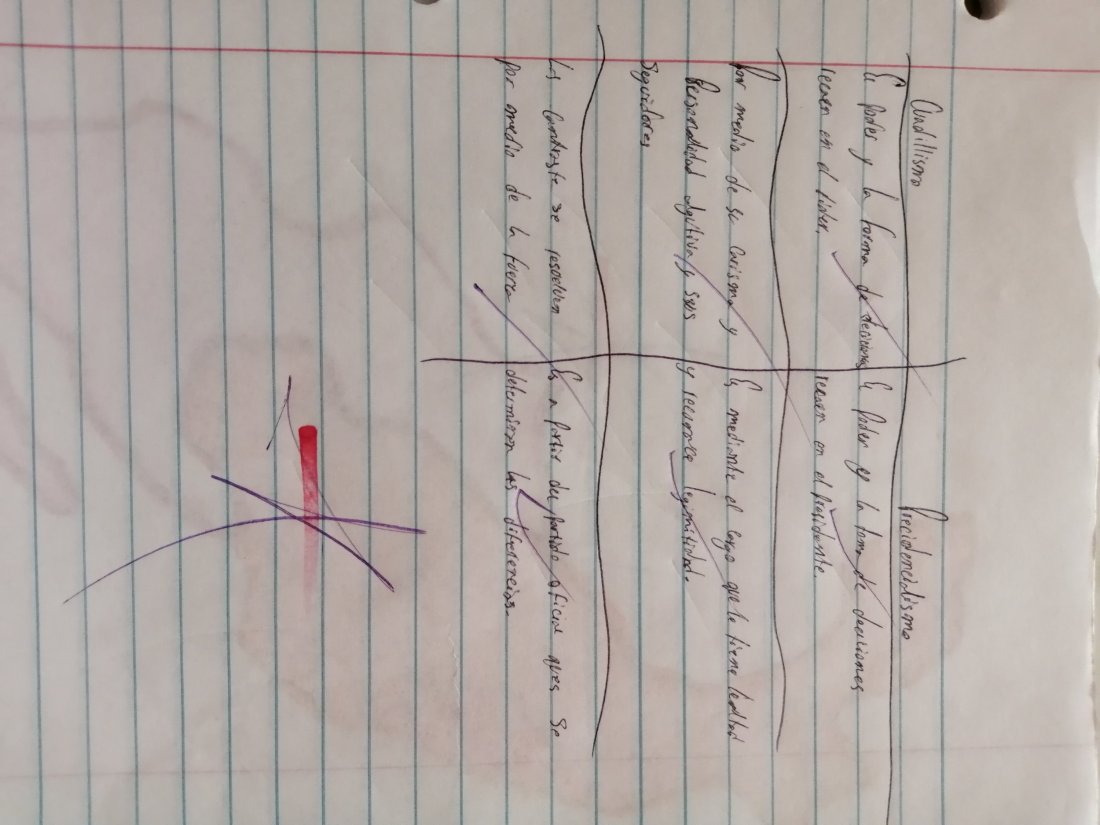 Caudillismo
Precidencialismo
El poder y la forma de deciciones
recaen en el lider.
El poder y la toma de deciciones
recaen en el Presidente
Por medio de su carisma y
Personalidad y sus
Seguidores
Es mediante el cargo que le tiene lealtad
y reconoce legimitidad.
Los contraste se resuelven
por medio de la fuerza
Es a partir del partido oficial que se
determinan las diferencias.